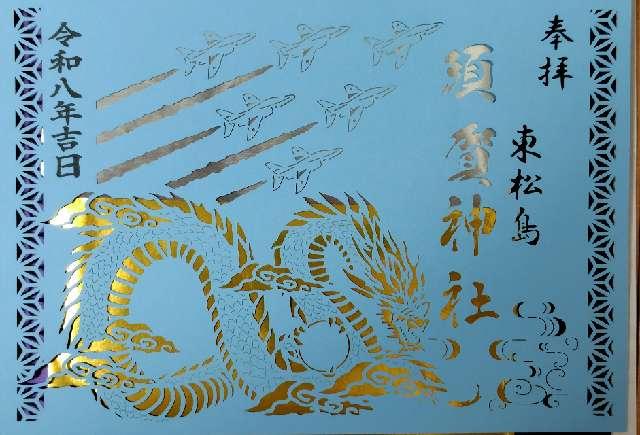 奉拝
東松島
須賀神社
令和八年吉日